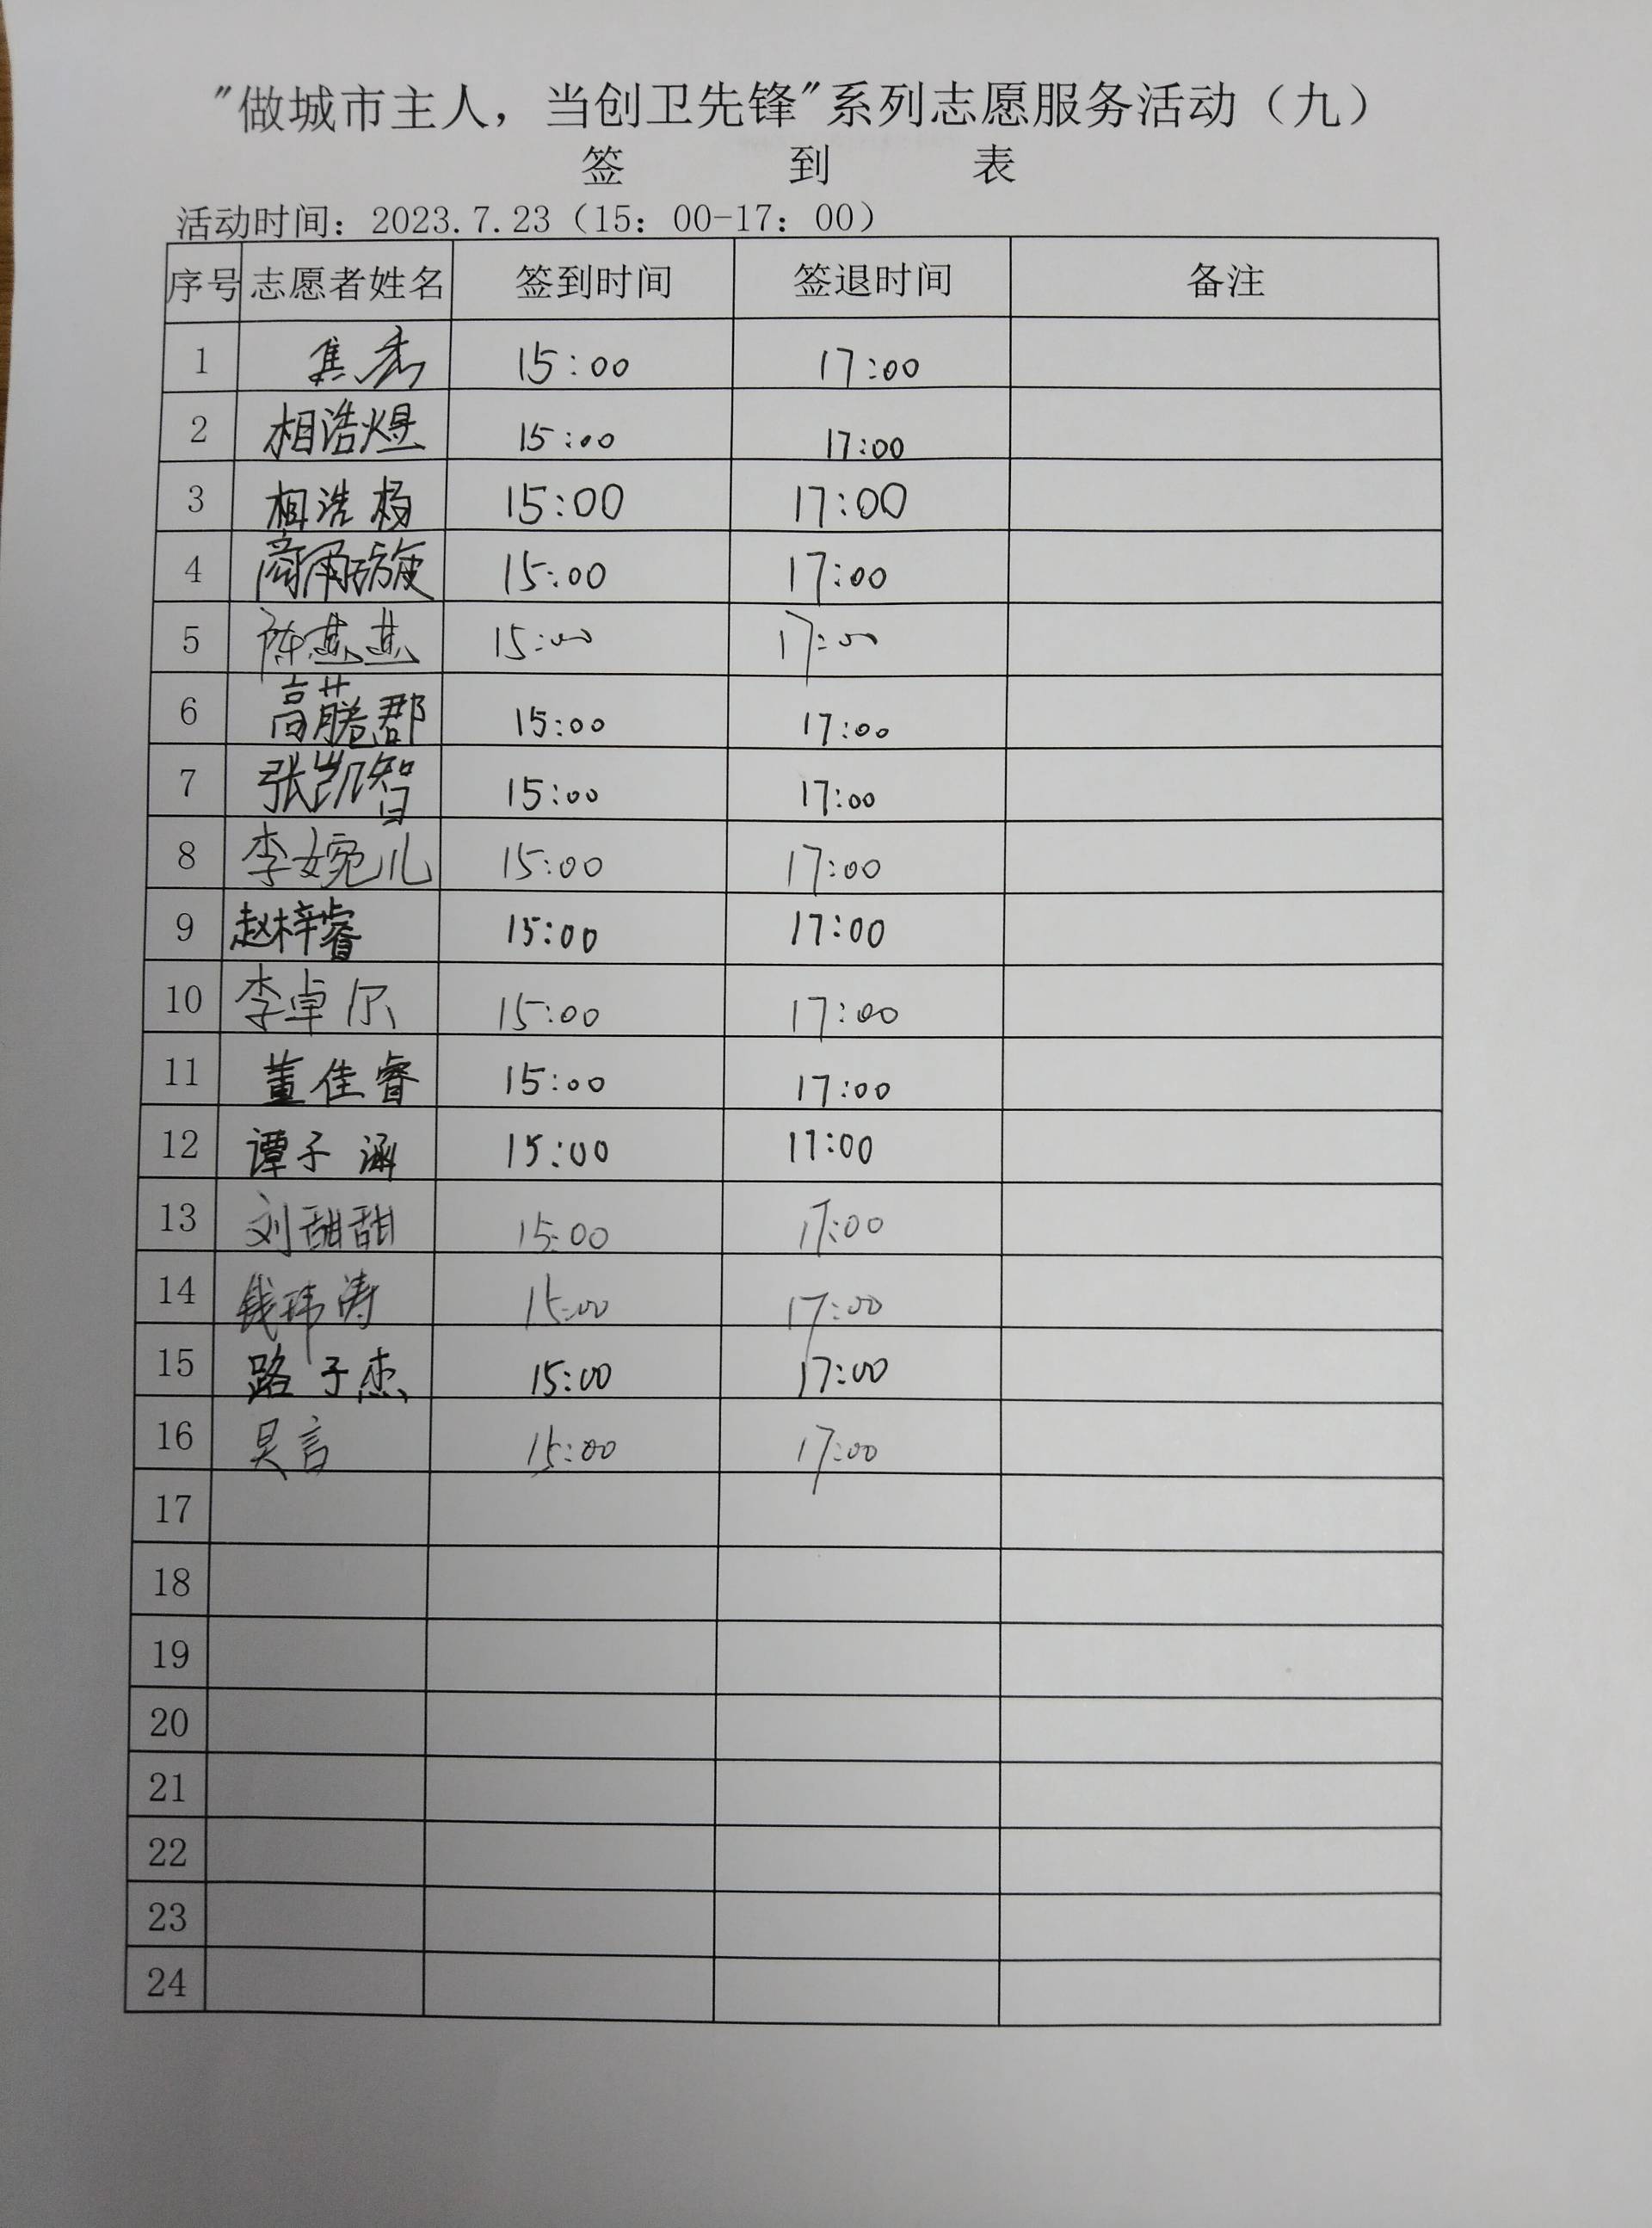 "做城市主人，当创卫先锋"系列志愿服务活动（九）
签 到 表
活动时间：2023.7.23（15：00-17：00）
序号 志愿者姓名 签到时间 签退时间 备注
1 15:00 17:00
2 相浩煜 15:00 17:00
3 相浩杨 15:00 17:00
4 15:00 17:00
5 陈燕燕 15:00 17:00
6 高藤郡 15:00 17:00
7 张凯智 15:00 17:00
8 李婉儿 15:00 17:00
9 赵梓睿 15:00 17:00
10 李卓尔 15:00 17:00
11 董佳睿 15:00 17:00
12 谭子涵 15:00 17:00
13 刘甜甜 15:00 17:00
14 钱玮涛 15:00 17:00
15 路子杰 15:00 17:00
16 吴言 15:00 17:00
17
18
19
20
21
22
23
24